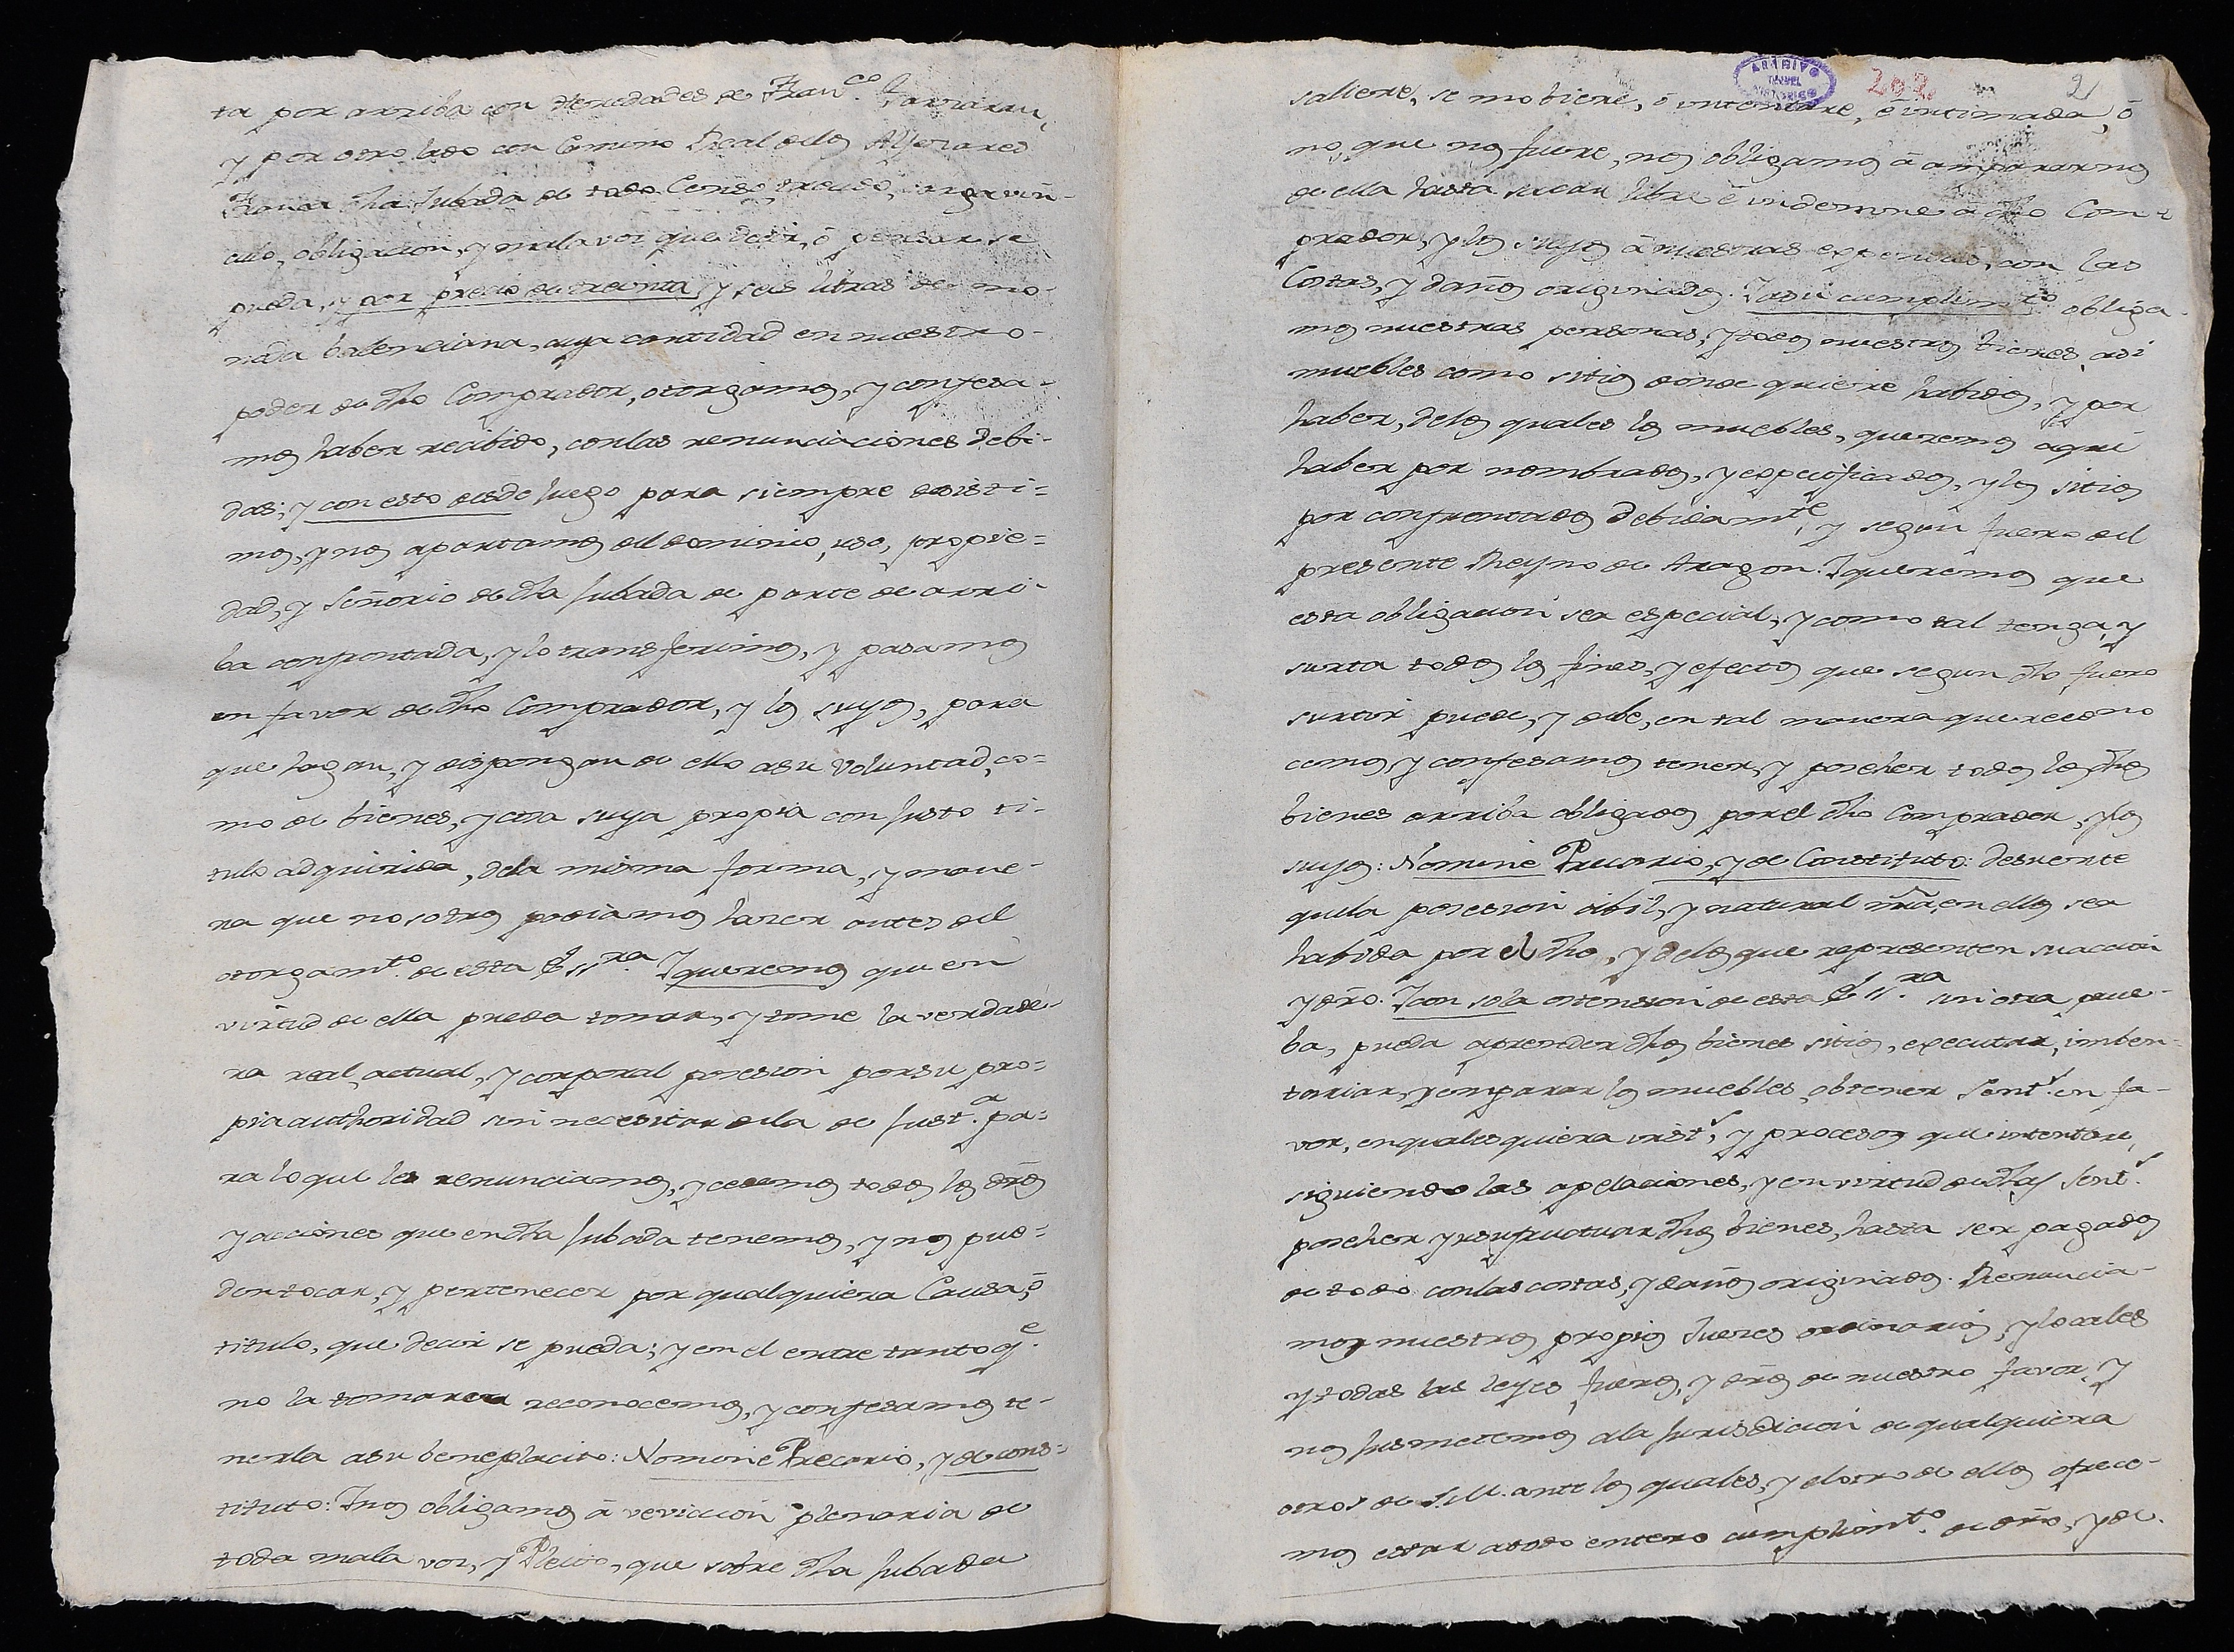 ta por arriba con Heredades de Fran.co
y por otro lado con Camino Real dellos Alfarares
Franca dha Jubada de todo Censo, treudo, vin-
culo, obligacion, y mala voz que decir, ó pensar se
pueda, y por precio de treinta y seis libras de mo-
neda balenciana, cuya cantidad en nuestro
poder de dho Comprador, otorgamos, y confesa-
mos haber recibido, con las renunciaciones debi-
das; y con esto desde luego para siempre desisti=
mos, y nos apartamos del dominio, uso, propie=
dad, y Señorio de dha Jubada de parte de arri-
ba confrontada, y lo transferimos, y pasamos
en favor de dho Comprador, y los suyos, para
que hagan, y dispongan de ello a su voluntad, co=
mo de bienes, y cosa suya propia con justo ti-
tulo adquirida, dela misma forma, y mane-
ra que nosotros podiamos hacer antes del
otorgam.to de esta Ess.ra Y queremos que en
virtud de ella pueda tomar, y tome la verdade-
ra real, actual, y corporal posesion por su pro-
pia authoridad sin necesitar dela de Just.a pa=
ra lo que les renunciamos, y cedemos todos los dr̃os
y acciones que en dha Jubada tenemos, y nos pue-
den tocar, y pertenecer por qualquiera Causa, ó
titulo, que decir se pueda; y en el entre tanto q.e
no la tomaren reconocemos, y confesamos te-
nerla asu beneplacito: Nomine Precario, y de cons=
tituto: Y nos obligamos á eviccion plenaria de
toda mala voz, y Pleito, que sobre dha Jubada
202
2
saliere, se mobiere, ó intentare, é intimada, ó
no, que nos fuere, nos obligamos á ampararnos
de ella hasta sacar libre é indemne á dho Com-
prador, y los suyos á nuestras expensas, con las
Costas, y daños originados. Y asu cumplim.to obliga-
mos nuestras personas, y todos nuestros bienes, asi
muebles como sitios donde quiere habidos, y por
haber, delos quales los muebles, queremos aqui
haber por nombrados, y especificados, y los sitios
por confrontados debidam.te, y segun fuero del
presente Reyno de Aragon. Y queremos que
esta obligacion sea especial, y como tal tenga, y
surta todos los fines, y efectos que segun dho fuero
surtir puede, y debe, en tal manera que recono
cemos, y confesamos tener, y poseher todos los dhos
bienes arriba obligados por el dho Comprador, y los
suyos: Nomine Precario, y de Constituto: desuerte
quela posesion cibil, y natural nr̃a, en ellos sea
habida por el dho, y delos que representen su accion
y dr̃o. Y con sola ostension de esta Ess.ra sin otra prue-
ba, pueda aprender dhos bienes sitios, executar, imben-
tariar, y emparar los muebles, obtener Sent.s en fa-
vor, en qualesquiera inst.s, y procesos que intentare,
siguiendo las apelaciones, y en virtud de dhas Sent.s
poseher y usufructuar dhos bienes, hasta ser pagados
de todo con las costas, y daños originados. Renuncia-
mos nuestros propios Jueces ordinarios, y locales
y todas las leyes, fueros, y dr̃os de nuestro favor. Y
nos Jusmetemos ala Jurisdicion de qualquiera
otros de S.M. ante los quales, y el otro de ellos ofrece-
mos estar atodo entero cumplim.to de dr̃o, y de